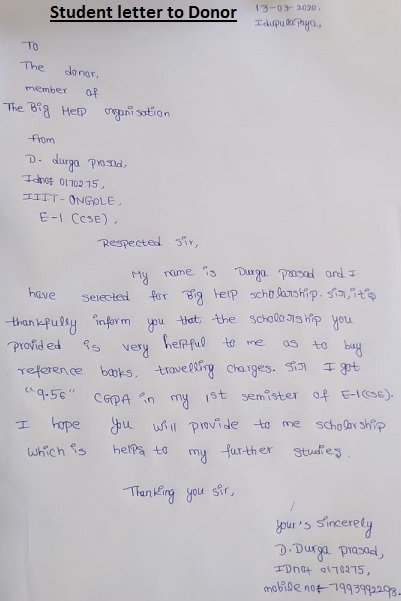 Student letter to Donor
13-03-2020.
Idupulapaya,
To
The donor,
member of
The Big Help organisation
from
D. durga prasad,
Idno: 0170275,
IIIT-ONGOLE,
E-1 (CSE),
Respected sir,
My name is Durga prasad and I
have selected for Big help scholarship. sir, it is
thankfully inform you that the scholarship you
provided is very helpful to me as to buy
reference books, travelling charges. sir I got
"9.56" CGPA in my 1st semister of E-1(CSE).
I hope you will provide to me scholarship
which is helps to my further studies.
Thanking you sir,
your's sincerely
D. Durga prasad,
IDno: 0170275,
mobile no:- 7993992293.